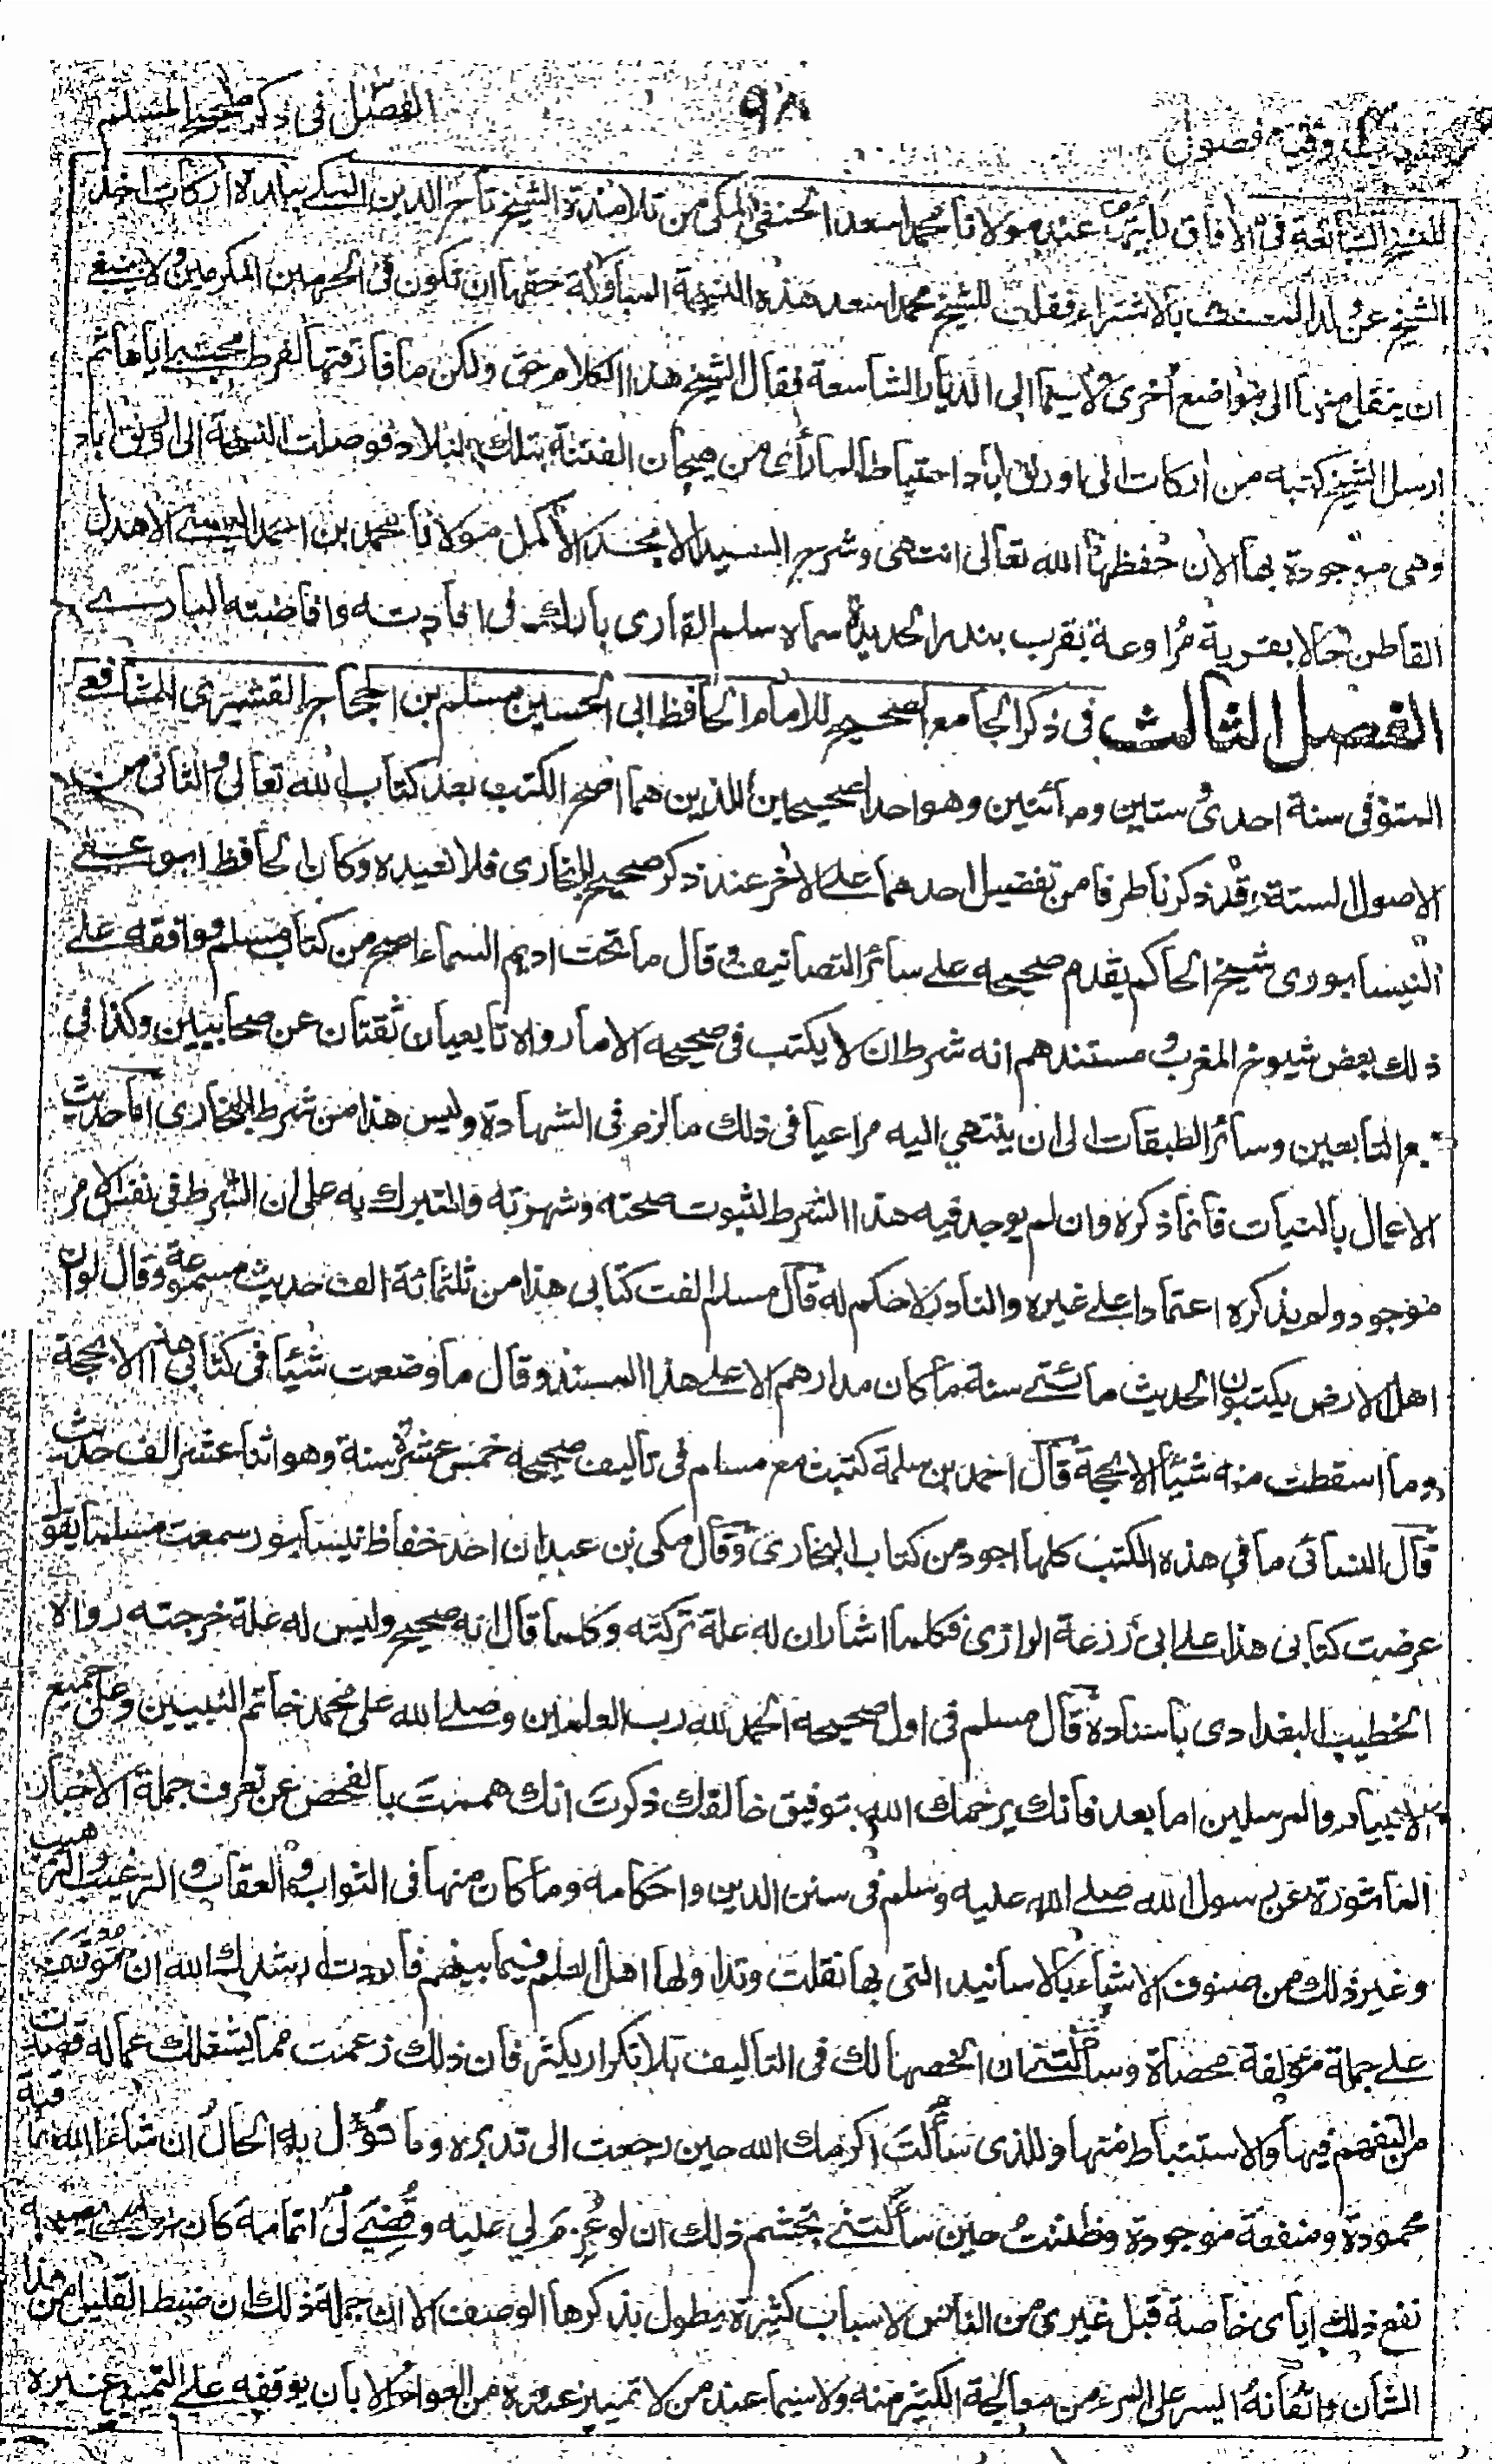 الفصل فى ذكر صحيح المسلم
٩٨
وفيه فصول
للنسخ الشائعة فى الآفاق رأيتها عند مولانا محمد اسعد الحنفى المكى من تلامذة الشيخ تاج الدين المكى ببلدة اركات اخذ
الشيخ عن ولد المصنف بالاشتراء فقلت للشيخ محمد اسعد هذه النسخة المباركة حقها ان تكون فى الحرمين المكرمين ولا ينبغى
ان ينقل منها الى مواضع اخرى ولا سيما الى الديار الشاسعة فقال الشيخ هذا الكلام حق ولكن ما فارقتها لفرط محبتى اياها ثم
ارسل الشيخ كتبه من اركات الى اورنق اباد احتياطا لما رأى من هيجان الفتنة بتلك البلاد فوصلت النسخة الى اورنق اباد
وهى موجودة بها الآن حفظها الله تعالى انتهى وشرح السيد الامجد الاكمل مولانا محمد بن احمد الاهدل
القاطن حالا بقرية مراوعة بقرب بندر الحديدة سماه سلم القارى بارك فى افادته وافاضته البارى
الفصل الثالث فى ذكر الجامع الصحيح للامام الحافظ ابى الحسين مسلم بن الحجاج القشيرى الشافعى
المتوفى سنة احدى وستين ومائتين وهو احد الصحيحين الذين هما اصح الكتب بعد كتاب الله تعالى والثانى من
الاصول الستة وقد ذكرنا طرفا من تفضيل احدهما على الآخر عند ذكر صحيح البخارى فلا نعيده وكان الحافظ ابو على
النيسابورى شيخ الحاكم يقدم صحيحه على سائر التصانيف وقال ما تحت اديم السماء اصح من كتاب مسلم ووافقه على
ذلك بعض شيوخ المغرب ومستندهم انه شرط ان لا يكتب فى صحيحه الا ما رواه تابعيان ثقتان عن صحابيين وكذا فى
تبع التابعين وسائر الطبقات الى ان ينتهى اليه مراعيا فى ذلك ما لزم فى الشهادة وليس هذا من شرط البخارى اما حديث
الاعمال بالنيات فانما ذكره وان لم يوجد فيه هذا الشرط لثبوت صحته وشهرته والتبرك به على ان الشرط فى نفس الامر
موجود ولم يذكره اعتمادا على غيره والنادر لا حكم له قال مسلم الفت كتابى هذا من ثلثمائة الف حديث مسموعة وقال لو ان
اهل الارض يكتبون الحديث مائتى سنة ما كان مدارهم الا على هذا المسند وقال ما وضعت شيئا فى كتابى هذا الا بحجة
وما اسقطت منه شيئا الا بحجة قال احمد بن سلمة كتبت مع مسلم فى تاليف صحيحه خمس عشرة سنة وهو اثنا عشر الف حديث
قال النسائى ما فى هذه الكتب كلها اجود من كتاب البخارى وقال مكى بن عبدان احد حفاظ نيسابور سمعت مسلما يقول
عرضت كتابى هذا على ابى زرعة الرازى فكلما اشار ان له علة تركته وكلما قال انه صحيح وليس له علة خرجته رواه
الخطيب البغدادى باسناده قال مسلم فى اول صحيحه الحمد لله رب العلمين وصلى الله على محمد خاتم النبيين وعلى جميع
الانبياء والمرسلين اما بعد فانك يرحمك الله بتوفيق خالقك ذكرت انك هممت بالفحص عن تعرف جملة الاخبار
الماثورة عن رسول الله صلى الله عليه وسلم فى سنن الدين واحكامه وما كان منها فى الثواب والعقاب والترغيب والترهيب
وغير ذلك من صنوف الاشياء بالاسانيد التى بها نقلت وتداولها اهل العلم فيما بينهم فاردت ارشدك الله ان توقف
على جملة مؤلفة محصاة وسألتنى ان الخصها لك فى التاليف بلا تكرار يكثر فان ذلك زعمت مما يشغلك عما له قصدت
من التفهم فيها والاستنباط منها وللذى سألت اكرمك الله حين رجعت الى تدبره وما تؤل به الحال ان شاء الله عاقبة
محمودة ومنفعة موجودة وظننت حين سألتنى تجشم ذلك ان لو عزم لى عليه وقضى لى اتمامه كان اول من يصيبه
نفع ذلك اياى خاصة قبل غيرى من الناس لاسباب كثيرة يطول بذكرها الوصف الا ان جملة ذلك ان ضبط القليل من هذا
الشأن واتقانه ايسر على المرء من معالجة الكثير منه ولا سيما عند من لا تمييز عنده من العوام الا بان يوقفه على التمييز غيره